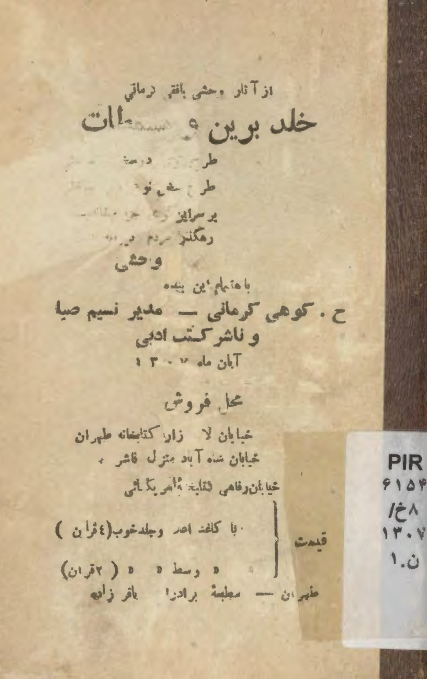 از آثار وحشی بافقی کرمانی
خلد برین و
طر
طر نو
بر سر این
رهگذر مردم
وحشی
باهتمام این بنده
ح . کوهی کرمانی — مدیر نسیم صبا
و ناشر کتب ادبی
آبان ماه ۱۳۰۷
محل فروش
خیابان لاله زار کتابخانه طهران
خیابان شاه آباد منزل ناشر
خیابان رفاهی
قیمت
با کاغذ اعلا وجلد خوب (٤ قران )
« وسط « « ( ۲ قران)
طهران — مطبعهٔ برادران باقر زاده
PIR
۶۱۵۴
۸خ/
۱۳۰۷
ن.۱